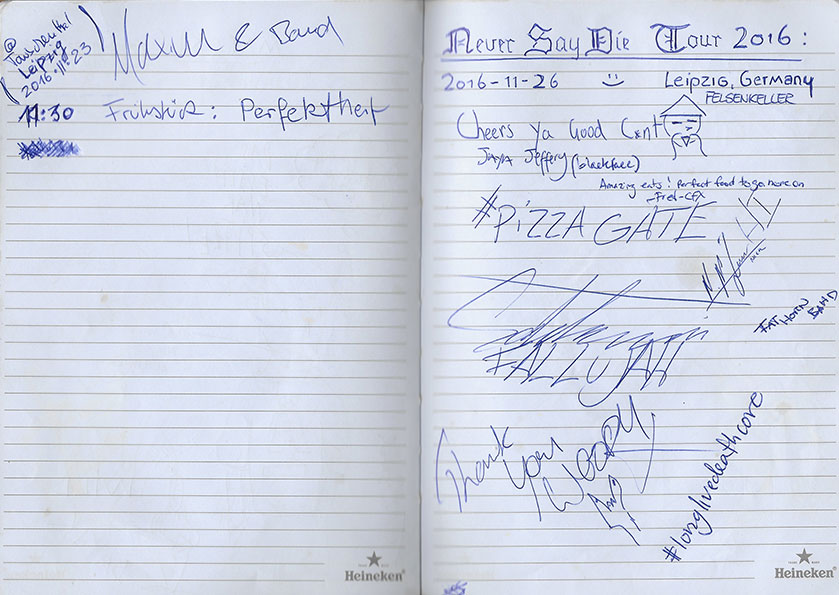 @
Täubchenthal
Leipzig
2016-11-23
Maxim & Band
11:30 Frühstück: Perfektheit
Heineken
Never Say Die Tour 2016:
2016-11-26 Leipzig, Germany
FELSENKELLER
Cheers Ya Good C*nt
Jeffery (blackface)
Amazing eats! perfect food to go home on
#PIZZA GATE
FAT HORN BAND
FALLUJAH
Thank you
#longlivedeathcore
Heineken